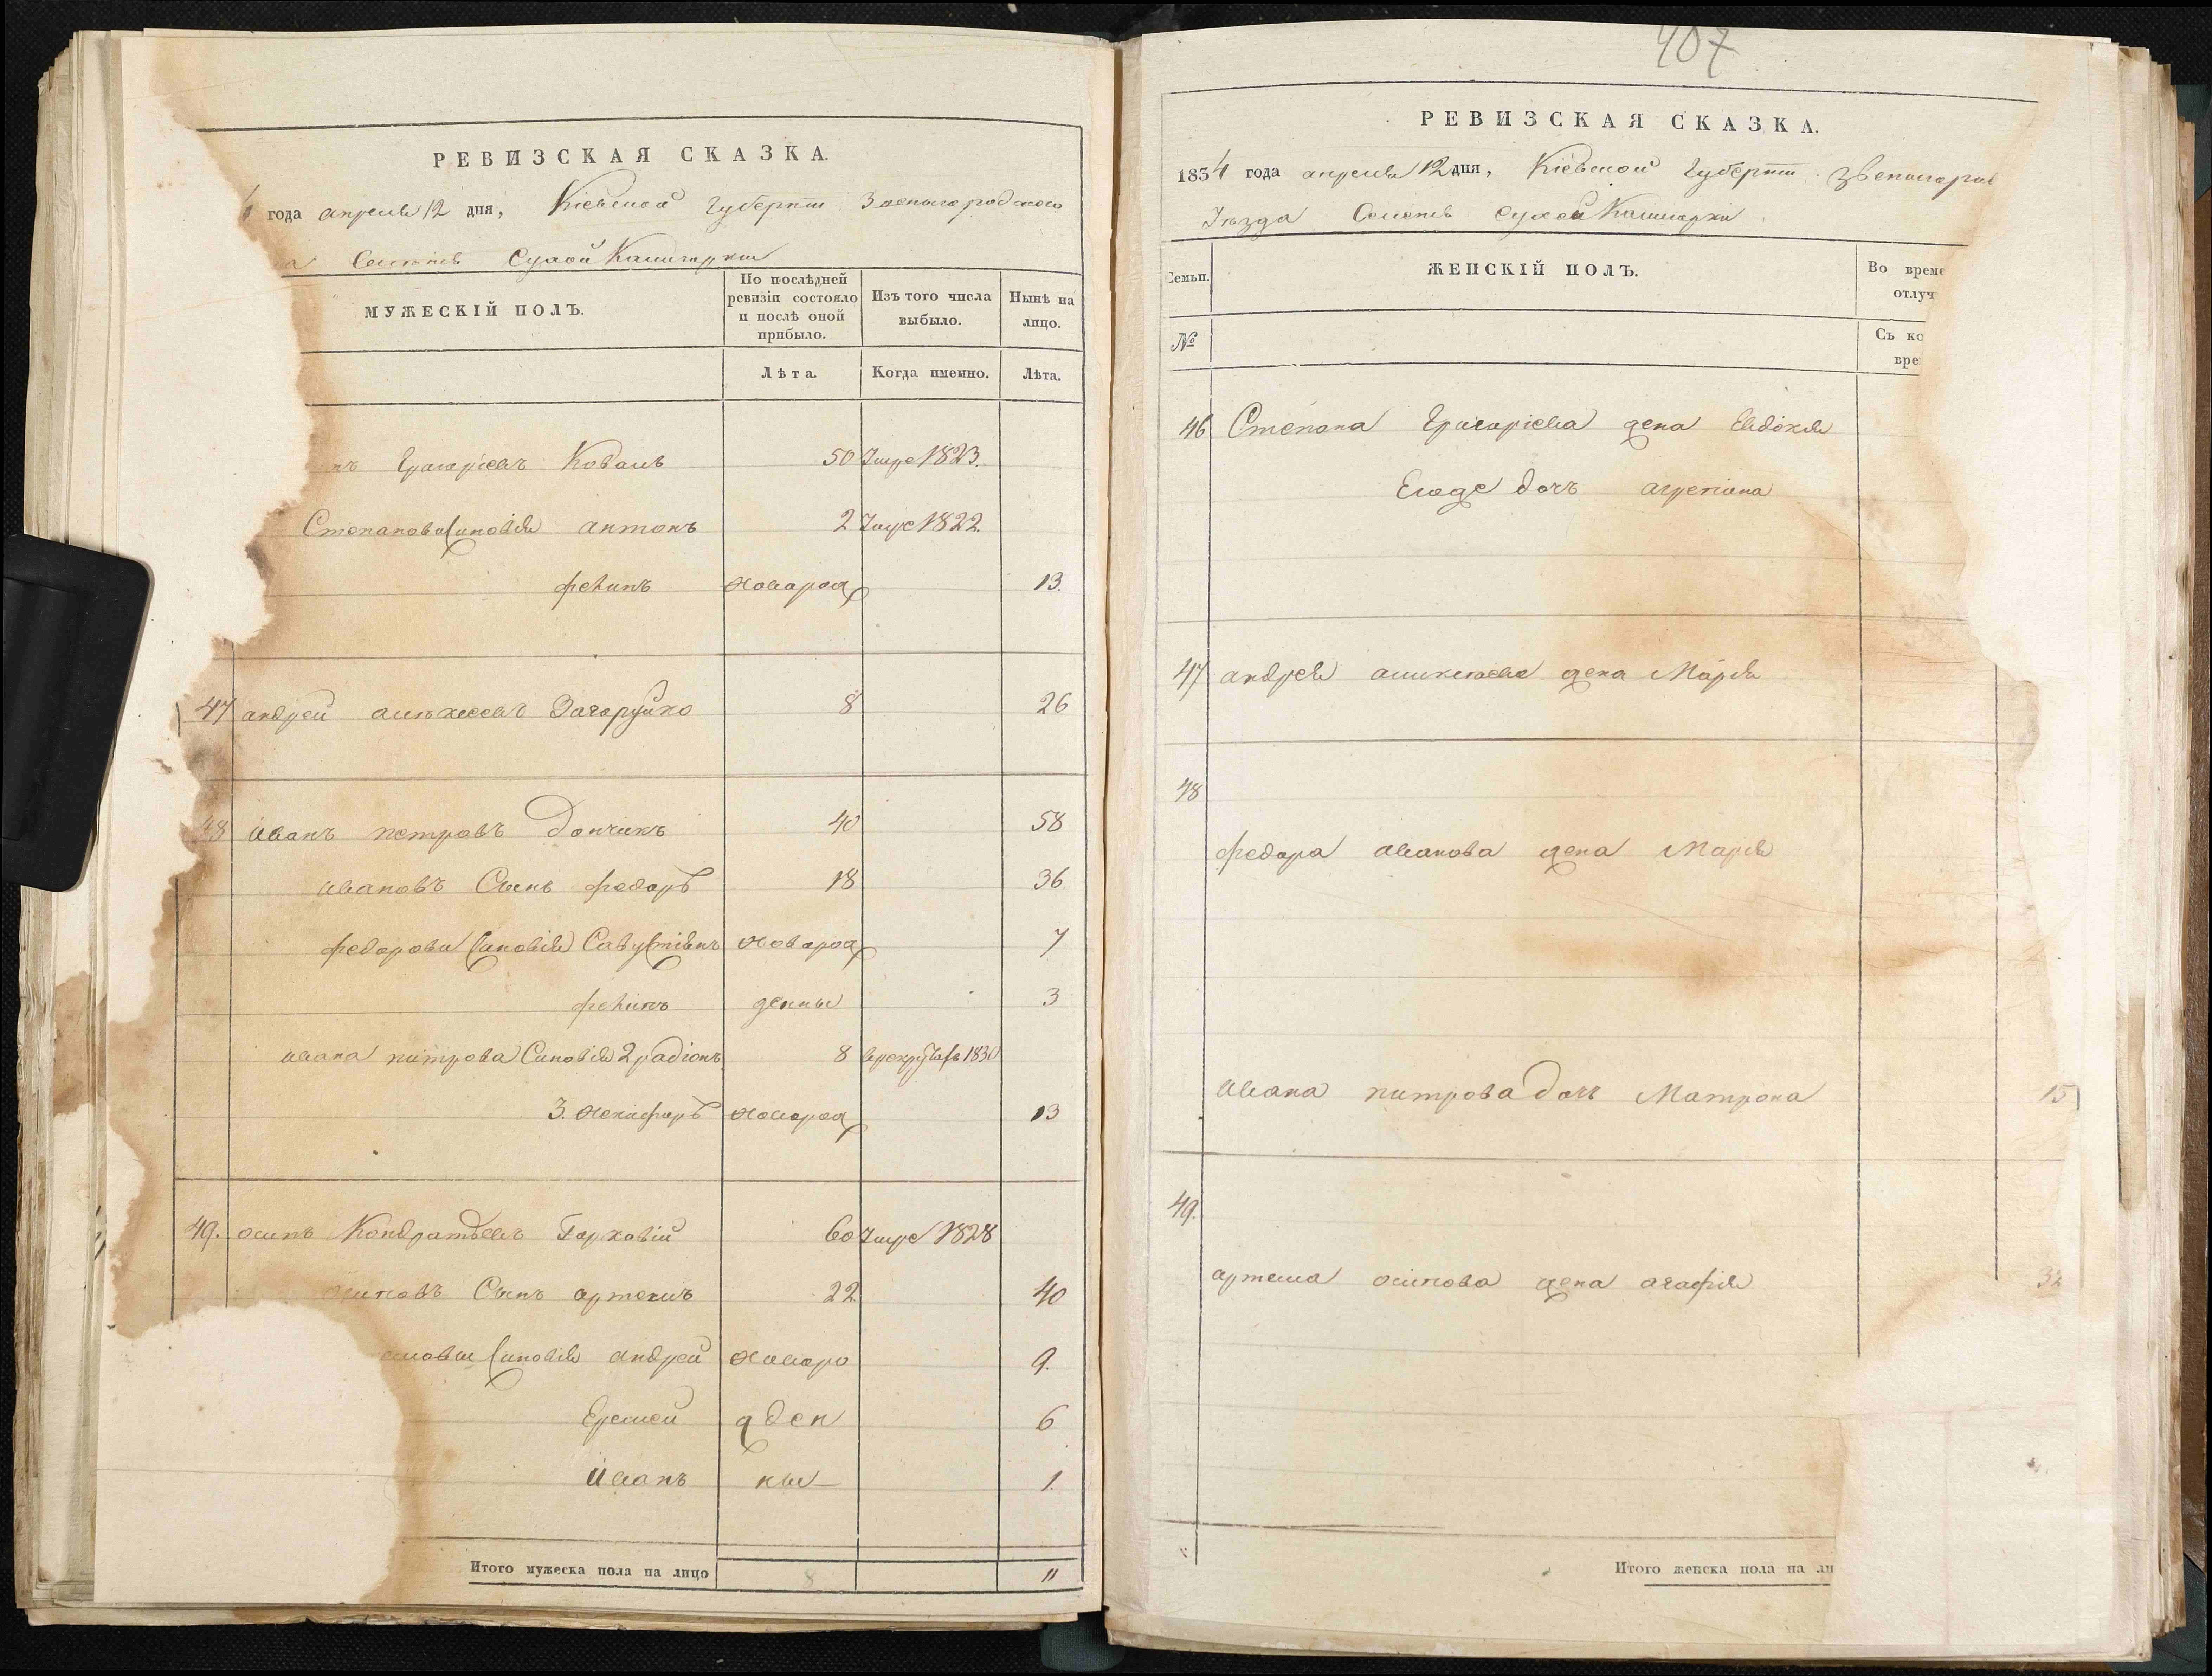 РЕВИЗСКАЯ СКАЗКА.
года апреля 12 дня, Кіевской Губерніи Звенигородского
Селенія Сухой Калигорки
МУЖЕСКІЙ ПОЛЪ.
По послѣдней ревизіи состояло и послѣ оной прибыло.
Изъ того числа выбыло.
Нынѣ на лицо.
Лѣта.
Когда именно.
Лѣта.
Григоріевъ Коваль 50 Умре 1823.
Степанова Синовія антонъ 2 Умре 1822.
филипъ новорож 13.
47 андрей алексеевъ 8 26
48 иванъ петровъ Дончикъ 40 58
ивановъ Сынъ федоръ 18 36
федорови Синовія новорож 7
филипъ денны 3
ивана питрова Синовія 2 радіонъ 8 1830
3. никифоръ новорож 13
49. осипъ Кондратьевъ 60 Умре 1828
осиповъ Сынъ артемъ 22 40
Синовія андрей новоро 9.
Еремей жден 6
Иванъ ны 1.
Итого мужеска пола на лицо 8 11
407
РЕВИЗСКАЯ СКАЗКА.
1834 года апреля 12 дня, Кіевской Губерніи
Уезда Селенія Сухой Калигорки
Семьи.
ЖЕНСКІЙ ПОЛЪ.
Во време
отлуч
№
Съ ко
вре
46 Степана Григоріева жена Евдокія
Егоже дочь агрепина
47 андрея алексеева жена Марія
48
федора иванова жена Марія
ивана питрова дочь Матрона 15
49.
артема осипова жена агафія 32
Итого женска пола на ли